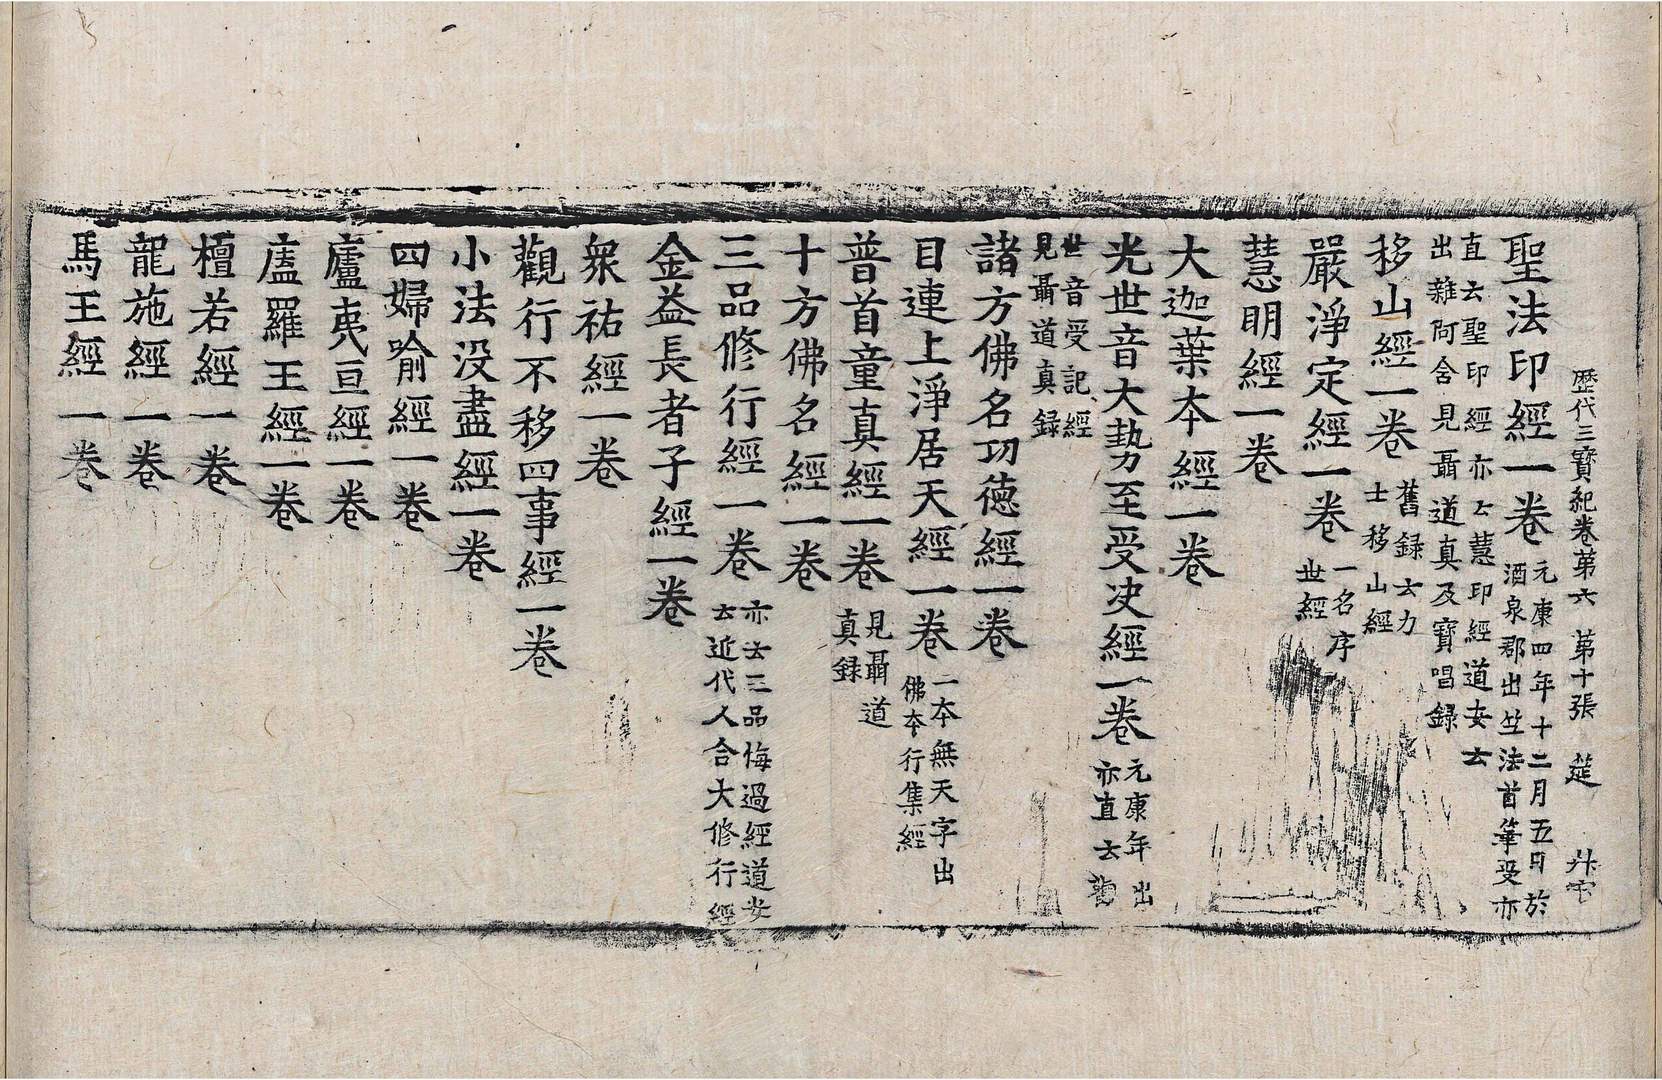 歷代三寶紀卷第六 第十張 莚
聖法印經一卷 元康四年十二月五日於
酒泉郡出竺法首筆受亦
直云聖印經亦云慧印經道安云
出雜阿含見聶道真及寶唱錄
移山經一卷 舊録云力
士移山經
嚴淨定經一卷 一名序
世經
慧明經一卷
大迦葉本經一卷
光世音大勢至受決經一卷 元康年出
亦直云觀
世音受記經
見聶道真録
諸方佛名功徳經一卷
目連上淨居天經一卷 一本無天字出
佛本行集經
普首童真經一卷 見聶道
真録
十方佛名經一卷
三品修行經一卷 亦云三品悔過經道安
云近代人合大修行經
金益長者子經一卷
衆祐經一卷
觀行不移四事經一卷
小法没盡經一卷
四婦喻經一卷
廬夷亘經一卷
廬羅王經一卷
檀若經一卷
龍施經一卷
馬王經一卷